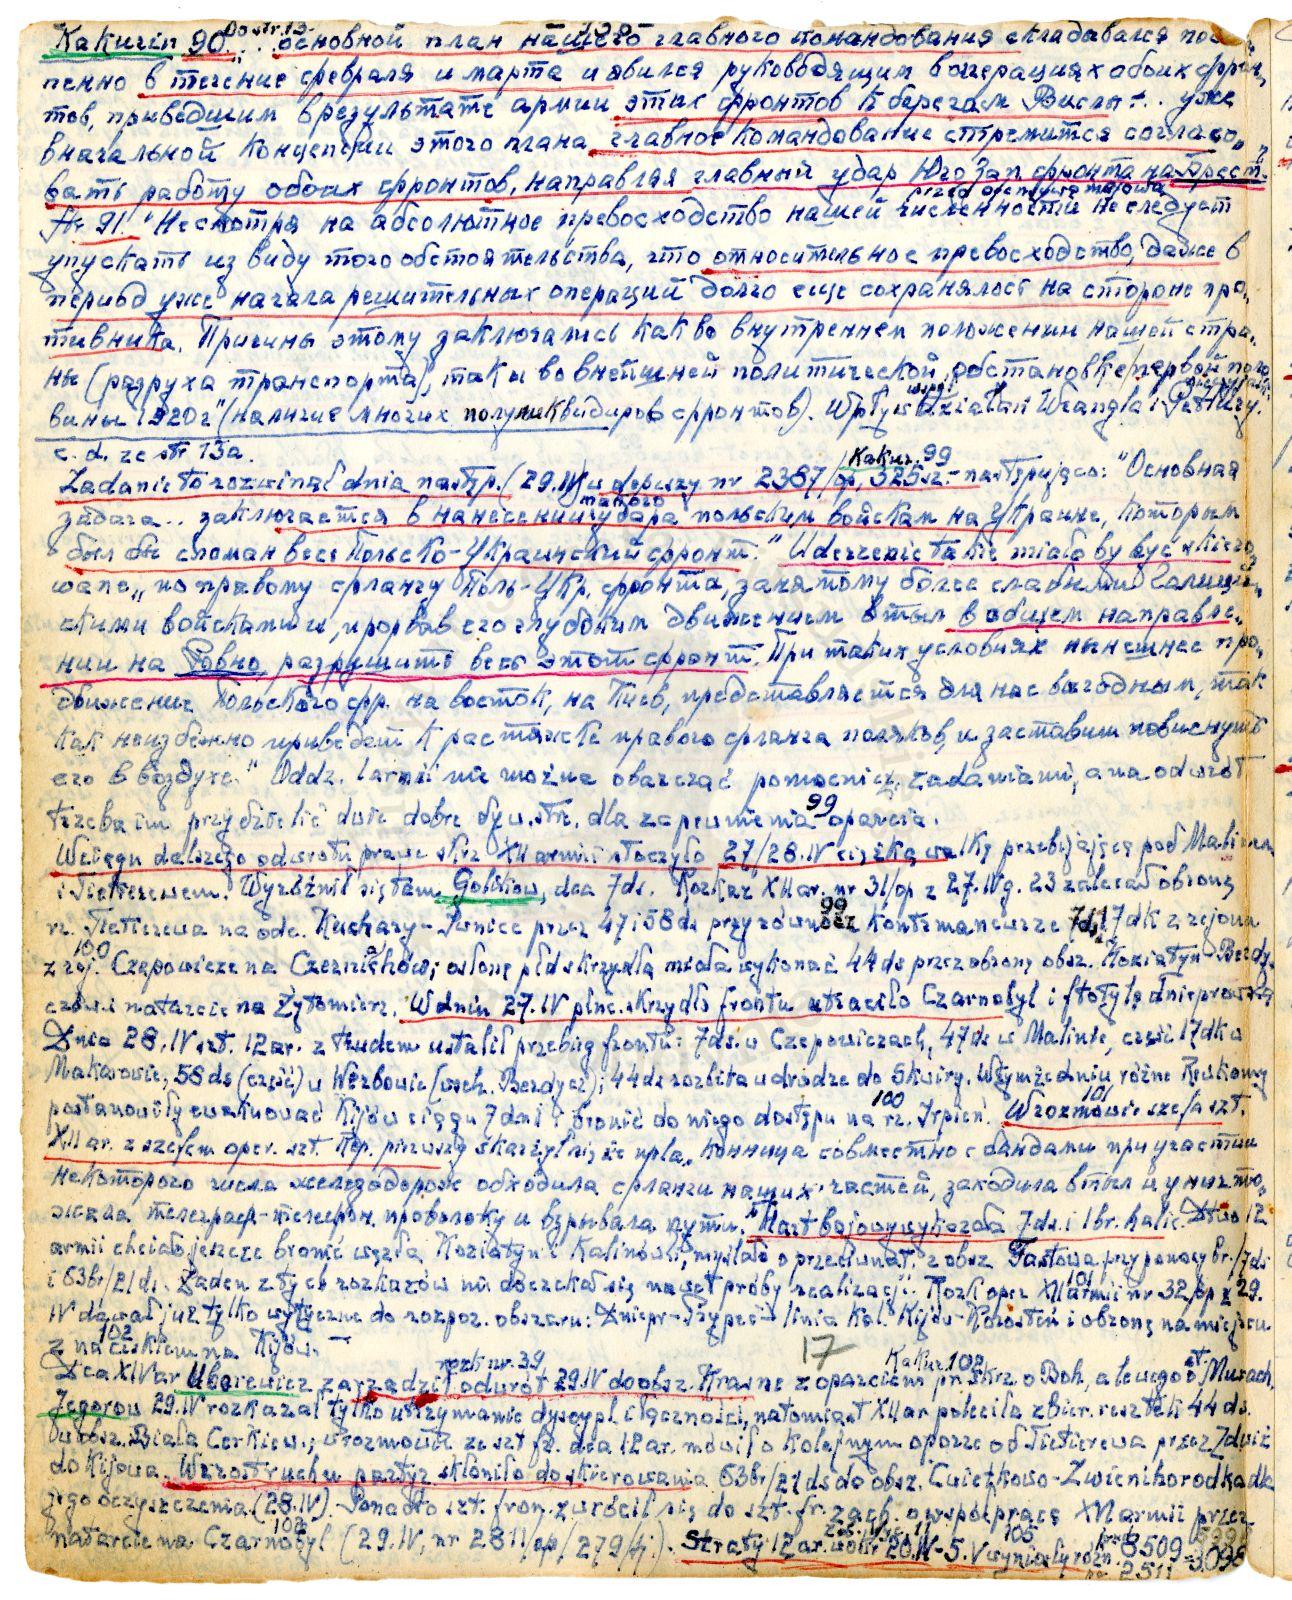 Do str. 13
Kakurin 90... основной план нашего главного командования складывался посте-
пенно в течение февраля и марта и явился руководящим в операциях обоих фрон-
тов, приведшим в результате армии этих фронтов к берегам Вислы... уже
в начальной концепции этого плана главное командование стремится согласо-
вать работу обоих фронтов, направляя главный удар Юго Зап фронта на Брест.
Str 91. "Несмотря на абсолютное превосходство нашей численности не следует
упускать из виду того обстоятельства, что относительное превосходство, даже в
период уже начала решительных операций долго еще сохранялось на стороне про-
тивника. Причины этому заключались как во внутреннем положении нашей стра-
ны (разруха транспорта), так и во внешней политической обстановке первой поло-
вины 1920 г" (наличие многих полуликвидиров фронтов). Wpływ działań Wrangla i Petlury.
c. d. ze str 13a.
Kakur. 99
Zadanie to rozwinął dnia nastp. (29.IV) w depeszy nr 2387/op, 325sz.- następująco: "Основная
задача.. заключается в нанесении такого удара польским войскам на Украине, которым
был бы сломан весь Польско-Украинский фронт." Uderzenie takie miało by być skiero-
wane "по правому флангу Поль-Укр. фронта, занятому более слабыми Галиций-
скими войсками и, прорвав его глубоким движением в тыл в общем направле-
нии на Ровно разрушить весь этот фронт. При таких условиях нынешнее про-
движение Польского фр. на восток, на Киев, представляется для нас выгодным, так
как неизбежно приведет к растяжке правого фланга поляков, и заставит повиснуть
его в воздухе." Oddz. 1 armii nie można obarczać pomocnicz. zadaniami, a na odwrót
trzeba im przydzielić dwie dobre dyw. str. dla zapewnienia oparcia. 99
W ciągu dalszego odwrotu prawe skrz XII armii stoczyło 27/28.IV ciężką walkę przebijając się pod Malinem
i Tieterewem. Wyróżnił się tam Golikow, dca 7ds. Rozkaz XII ar. nr 31/op z 27.IV g. 23 zalecał obronę
rz. Tieterewa na odc. Kuchary-Iwnice przez 47 i 58 ds przy równocz kontrmanewrze 7ds i 17dk z rejonu 99
z rej. Czepowicze na Czerniachów; osłonę płd skrzydła miała wykonać 44 ds przez obronę obsz. Koziatyn-Berdy- 100
czów i natarcie na Żytomierz. W dniu 27.IV płnc. skrzydło frontu utraciło Czarnobyl i flotylę dnieprowską
Dnia 28.IV szt. 12 ar. z trudem ustalił przebieg frontu: 7ds. w Czepowiczach, 47ds w Malinie, część 17dk w
Makarowie, 58 ds (część) w Werbowie (wsch. Berdycz); 44ds rozbita w drodze do Skwiry. W tymże dniu różne
postanowiły ewakuować Kijów w ciągu 7 dni i bronić do niego dostępu na rz. Irpień. 100 W rozmowie szefa szt. 101
XII ar. z szefem oper. szt. pierwszy skarżył się że npla "конница совместно с бандами при участии
некоторого числа железнодорож обходила фланги наших частей, заходила в тыл и уничто-
жала телеграф-телефон. проволоку и взрывала пути." Hart bojowy wykazała 7ds. i 1br. halic. D-two 12
armii chciało jeszcze bronić węzła Koziatyn i Kalinówki, myślało o przeciwnat. z obsz Fastowa przy pomocy br./7ds
i 63br/21ds. Żaden z tych rozkazów nie doczekał się nawet próby realizacji. Rozk oper XII armii nr 32/op z 29. 101
IV dawał już tylko wytyczne do rozpoz. obszaru: Dniepr-Prypeć-linia kol. Kijów-Korosteń i obronę na miejscu
z naciskiem na Kijów. 102
17
Kakur. 102
Dca XIV ar Uborewicz zarządził rozk nr. 39, odwrót 29.IV do obsz. Krasne z oparciem pr. skrz o Boh, a lewego o st Murach.
Jegorow 29.IV rozkazał tylko utrzymanie dyscypl i łączności, natomiast XII ar poleciła zbier. resztki 44 ds.
w obsz. Biała Cerkiew; w rozmowie ze szt fr. dca 12 ar. mówił o kolejnym oporze od Tieterewa przez Zdwiż
do Kijowa. Wzrost ruchu partyz skłonił do skierowania 63br/21ds do obsz. Cwietkowo-Zwienihorodka dla
jego oczyszczenia (28.IV). Ponadto szt. fron. zwrócił się do szt. fr. zach. o współpracę XVI armii przez
natarcie na Czarnobyl (29.IV, nr 2811/op/279/tj.). 102 Straty 12 ar. w okr 20.IV-5.V wyniosły różn. 105 8509
2511 = 3098